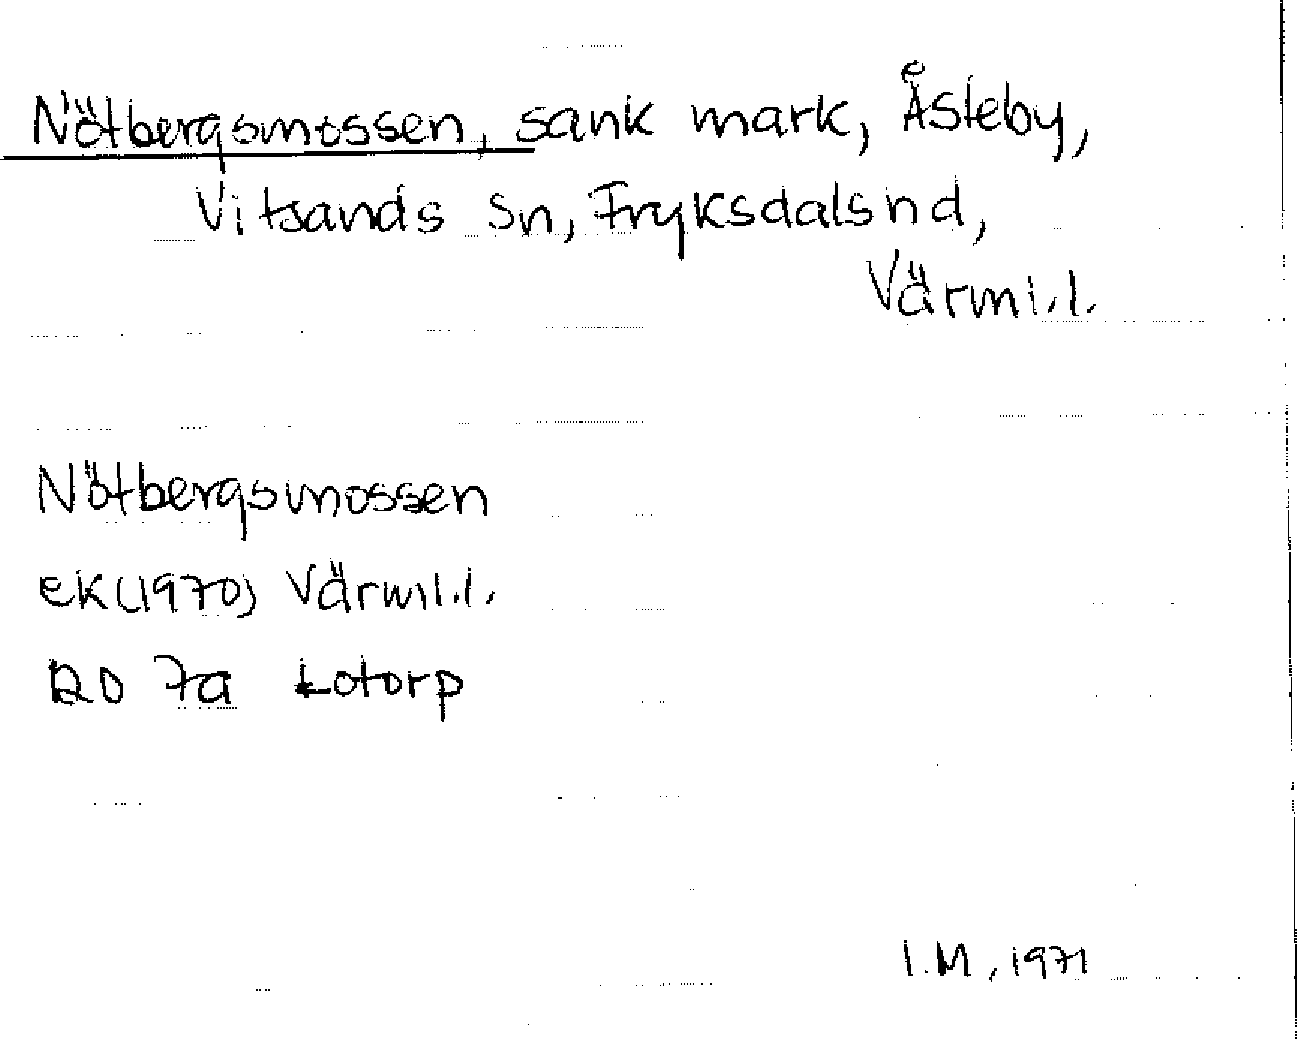 Nötbergsmossen, sank mark, Åsteby,
Vitsands Sn, Fryksdalsnd,
Värml.l.
Nötbergsmossen
eK(1970) Värml.l.
12D 7a Lotorp
I.M, 1971